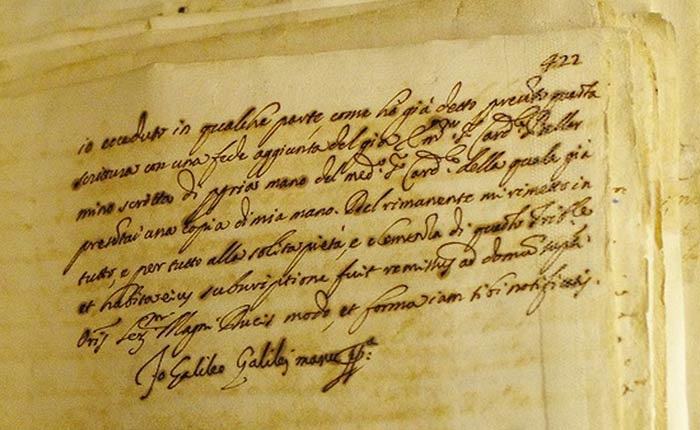 422
io ecceduto in qualche parte, come hò già detto presento questa
scrittura con una fede aggiunta del già Em.mo S.r Card.le Beller
mino scritta di propria mano del med.o S.r Card.le della quale già
presentai una copia di mia mano. Del rimanente mi rimetto in
tutto, e per tutto alla solita pietà, e clemenza di questo Trib.le
et habita eius subscriptione fuit remissus ad domum
Oris Ser.mi Magni Ducis modo, et forma iam sibi notificatis.
Io Galileo Galilei manu pp.a